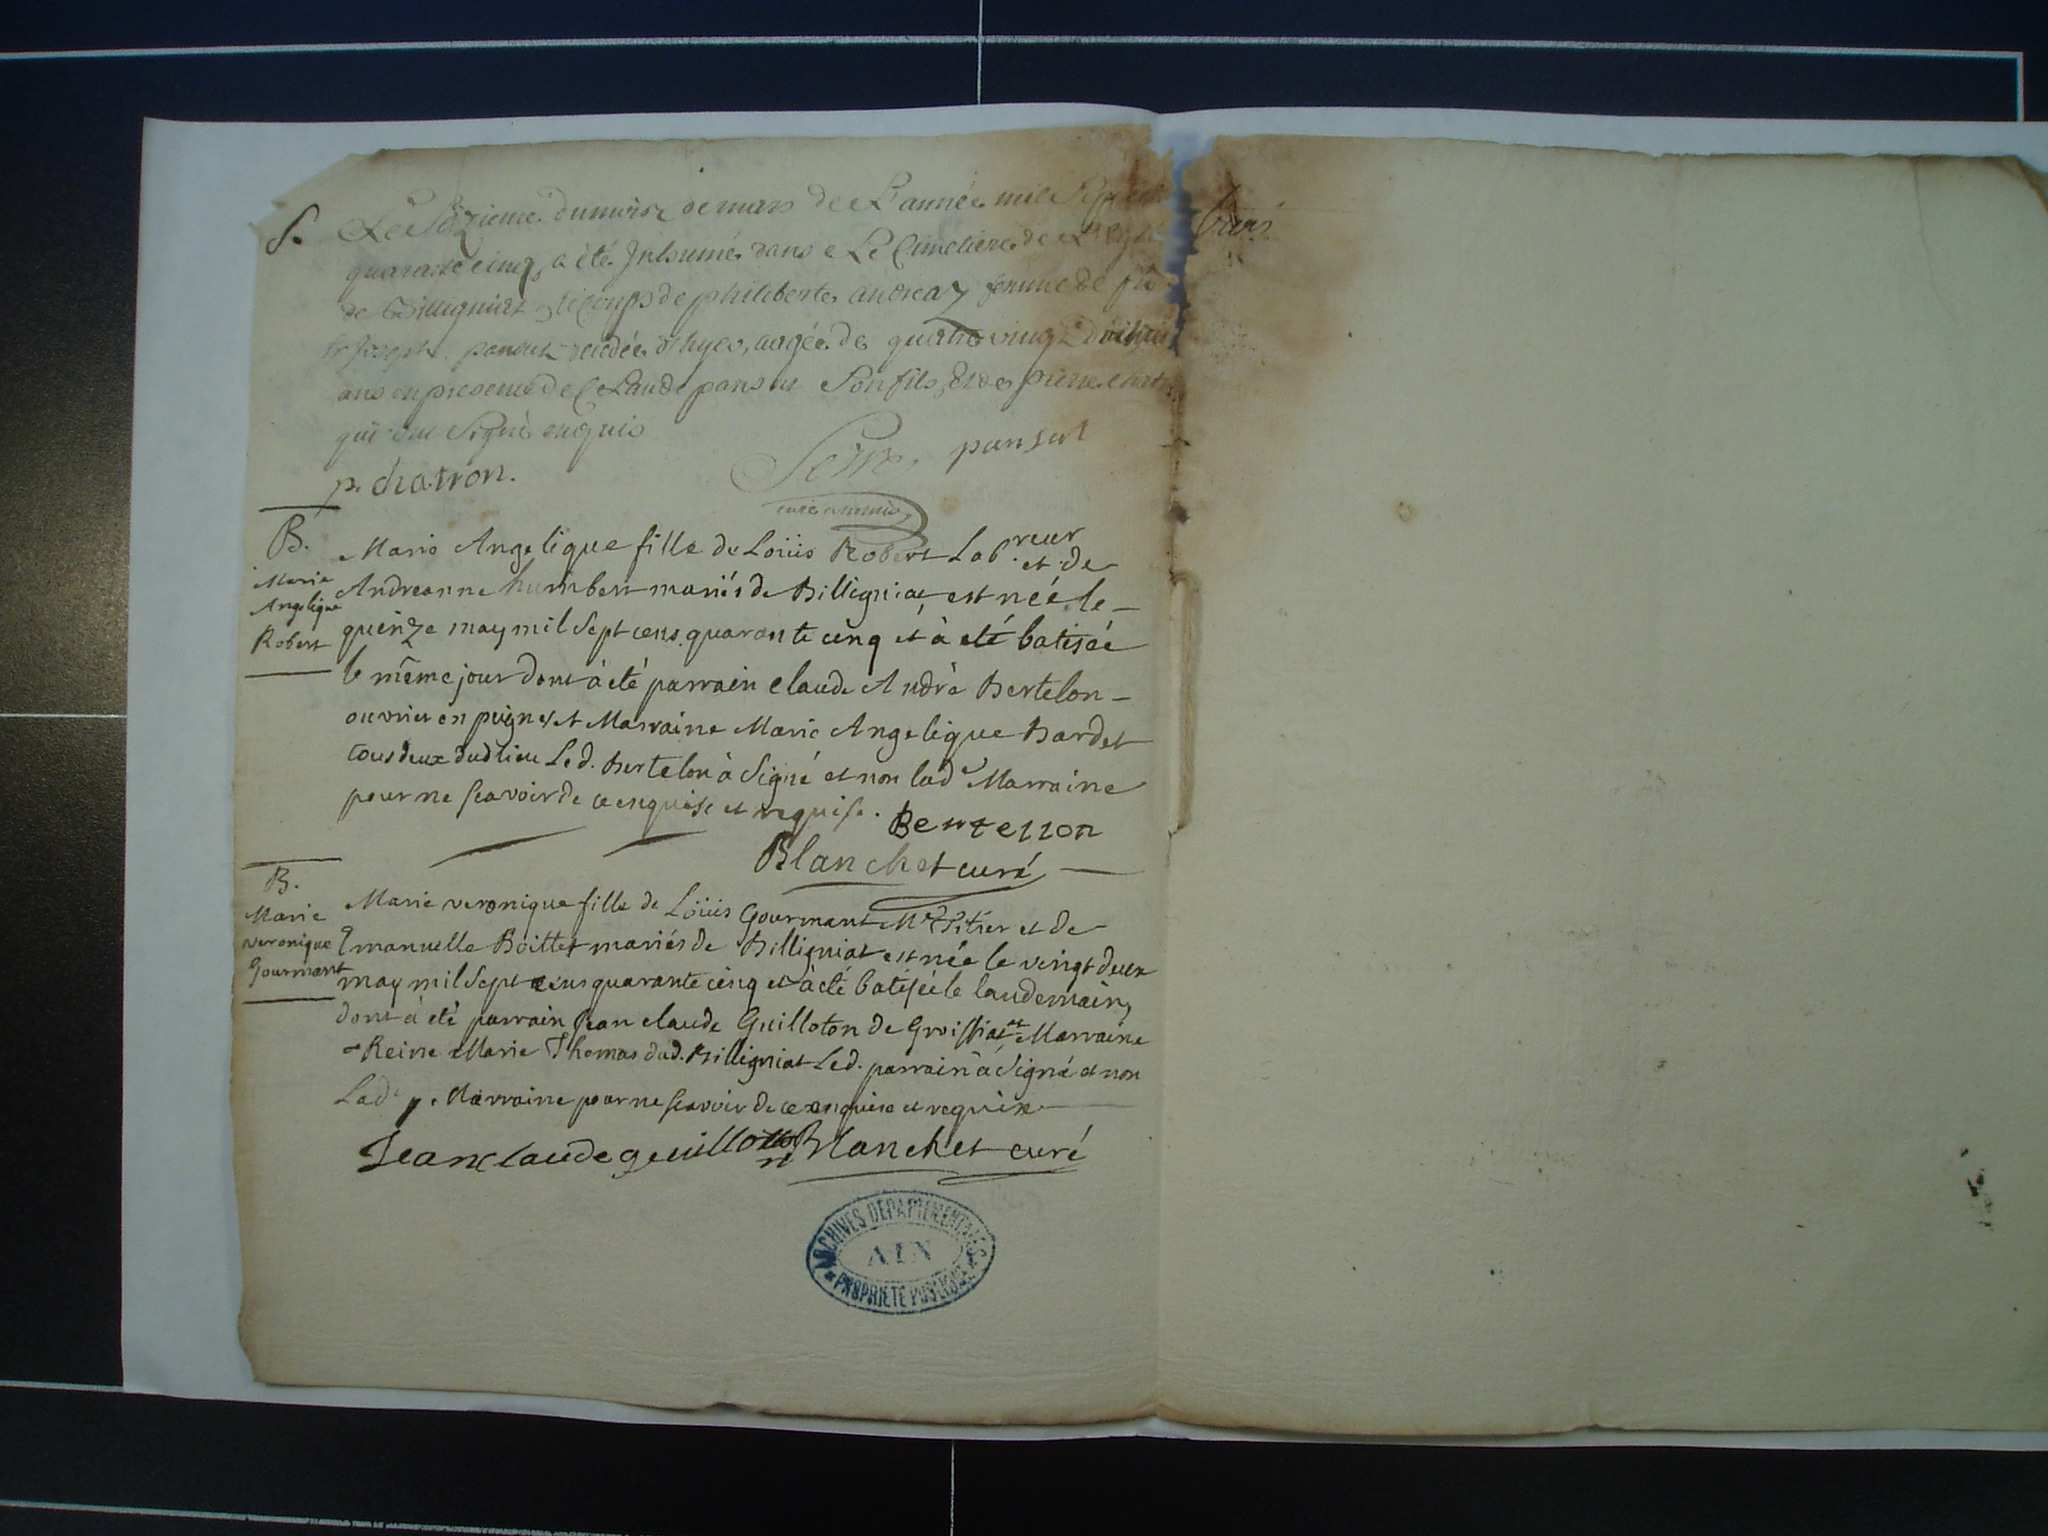 S. Le Sezieme du mois de mars de L'année mil Sept
quarante cinq, a été Inhumé dans Le Cimetiere de L'Eglise
de Billigniat, le corps de philiberte andrea femme de
Joseph pansut aagée de quatre vingt
ans en presence de Claude pansut Son fils, et de pierre
qui ont Signé enquis
Serre pansut
p. chatron.
B.
Marie
Angelique
Robert
Marie Angelique fille de Loüis Robert Lab.reur et de
Andreanne humbert mariés de Billigniat est née le
quinze may mil sept cens quarante cinq et à eté batisée
le même jour dont à eté parrain claude André Bertelon
ouvrier en peignes et Marraine Marie Angelique Bardet
tous deux dud lieu Led. Bertelon à signé et non lad.e Marraine
pour ne scavoir de ce enquise et requise. Bertellon
Blanchet curé
B.
Marie
veronique
Gourmant
Marie veronique fille de Loüis Gourmant et de
Emanuelle Boillet mariés de Billigniat est née le vingt deux
may mil sept cens quarante cinq et à eté batisée le landemain,
dont à eté parrain Jean claude Guilloton de Groissiat et Marraine
Reine Marie Thomas dud. Billigniat Led. parrain à signé et non
Lad.e Marraine pour ne scavoir de ce enquise et requise
Jean claude guilloton Blanchet curé
ARCHIVES DEPARTEMENTALES
AIN
PROPRIETE PUBLIQUE